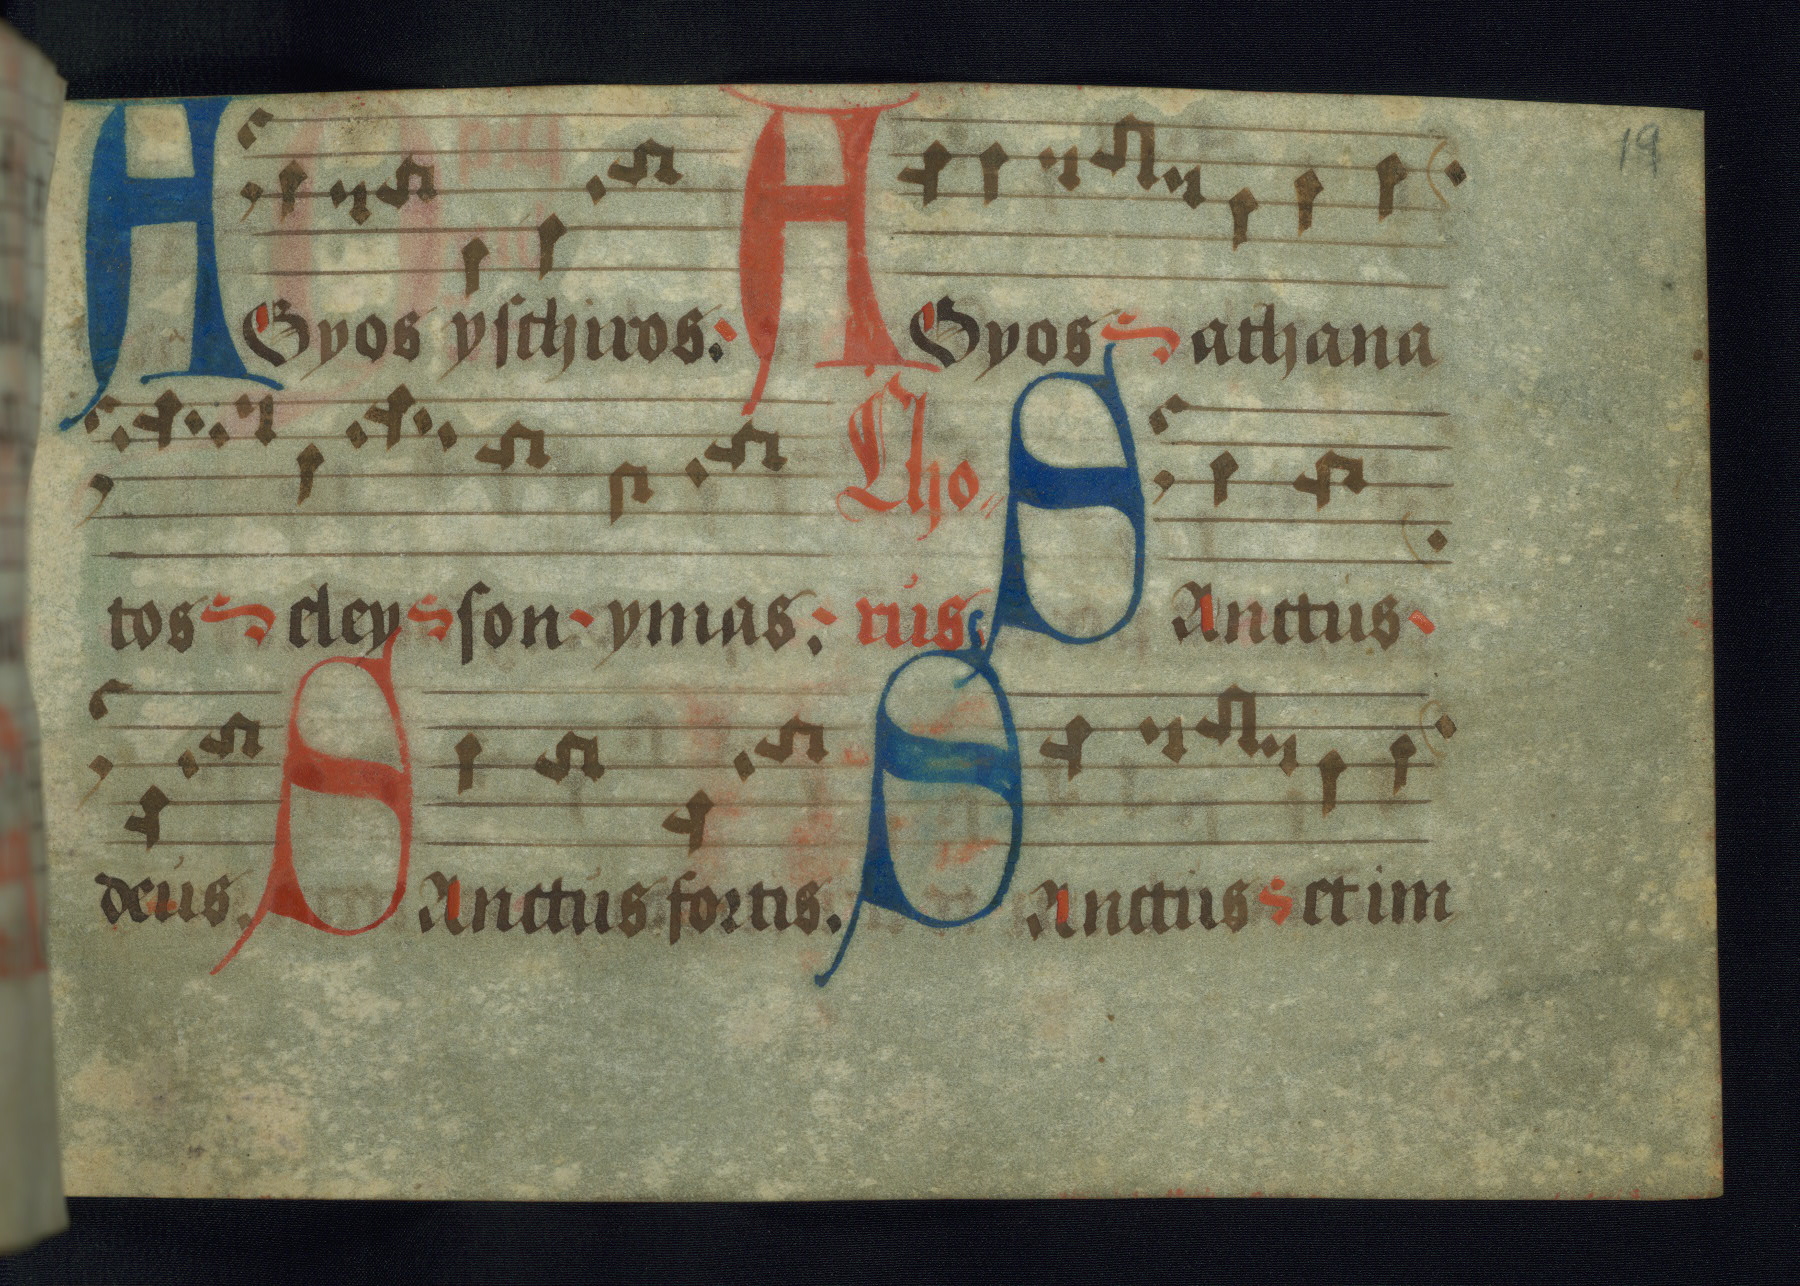 19
AGyos yschiros. AGyos athana
tos eleyson ymas. Chorus SAnctus
deus. SAnctus fortis. SAnctus et im